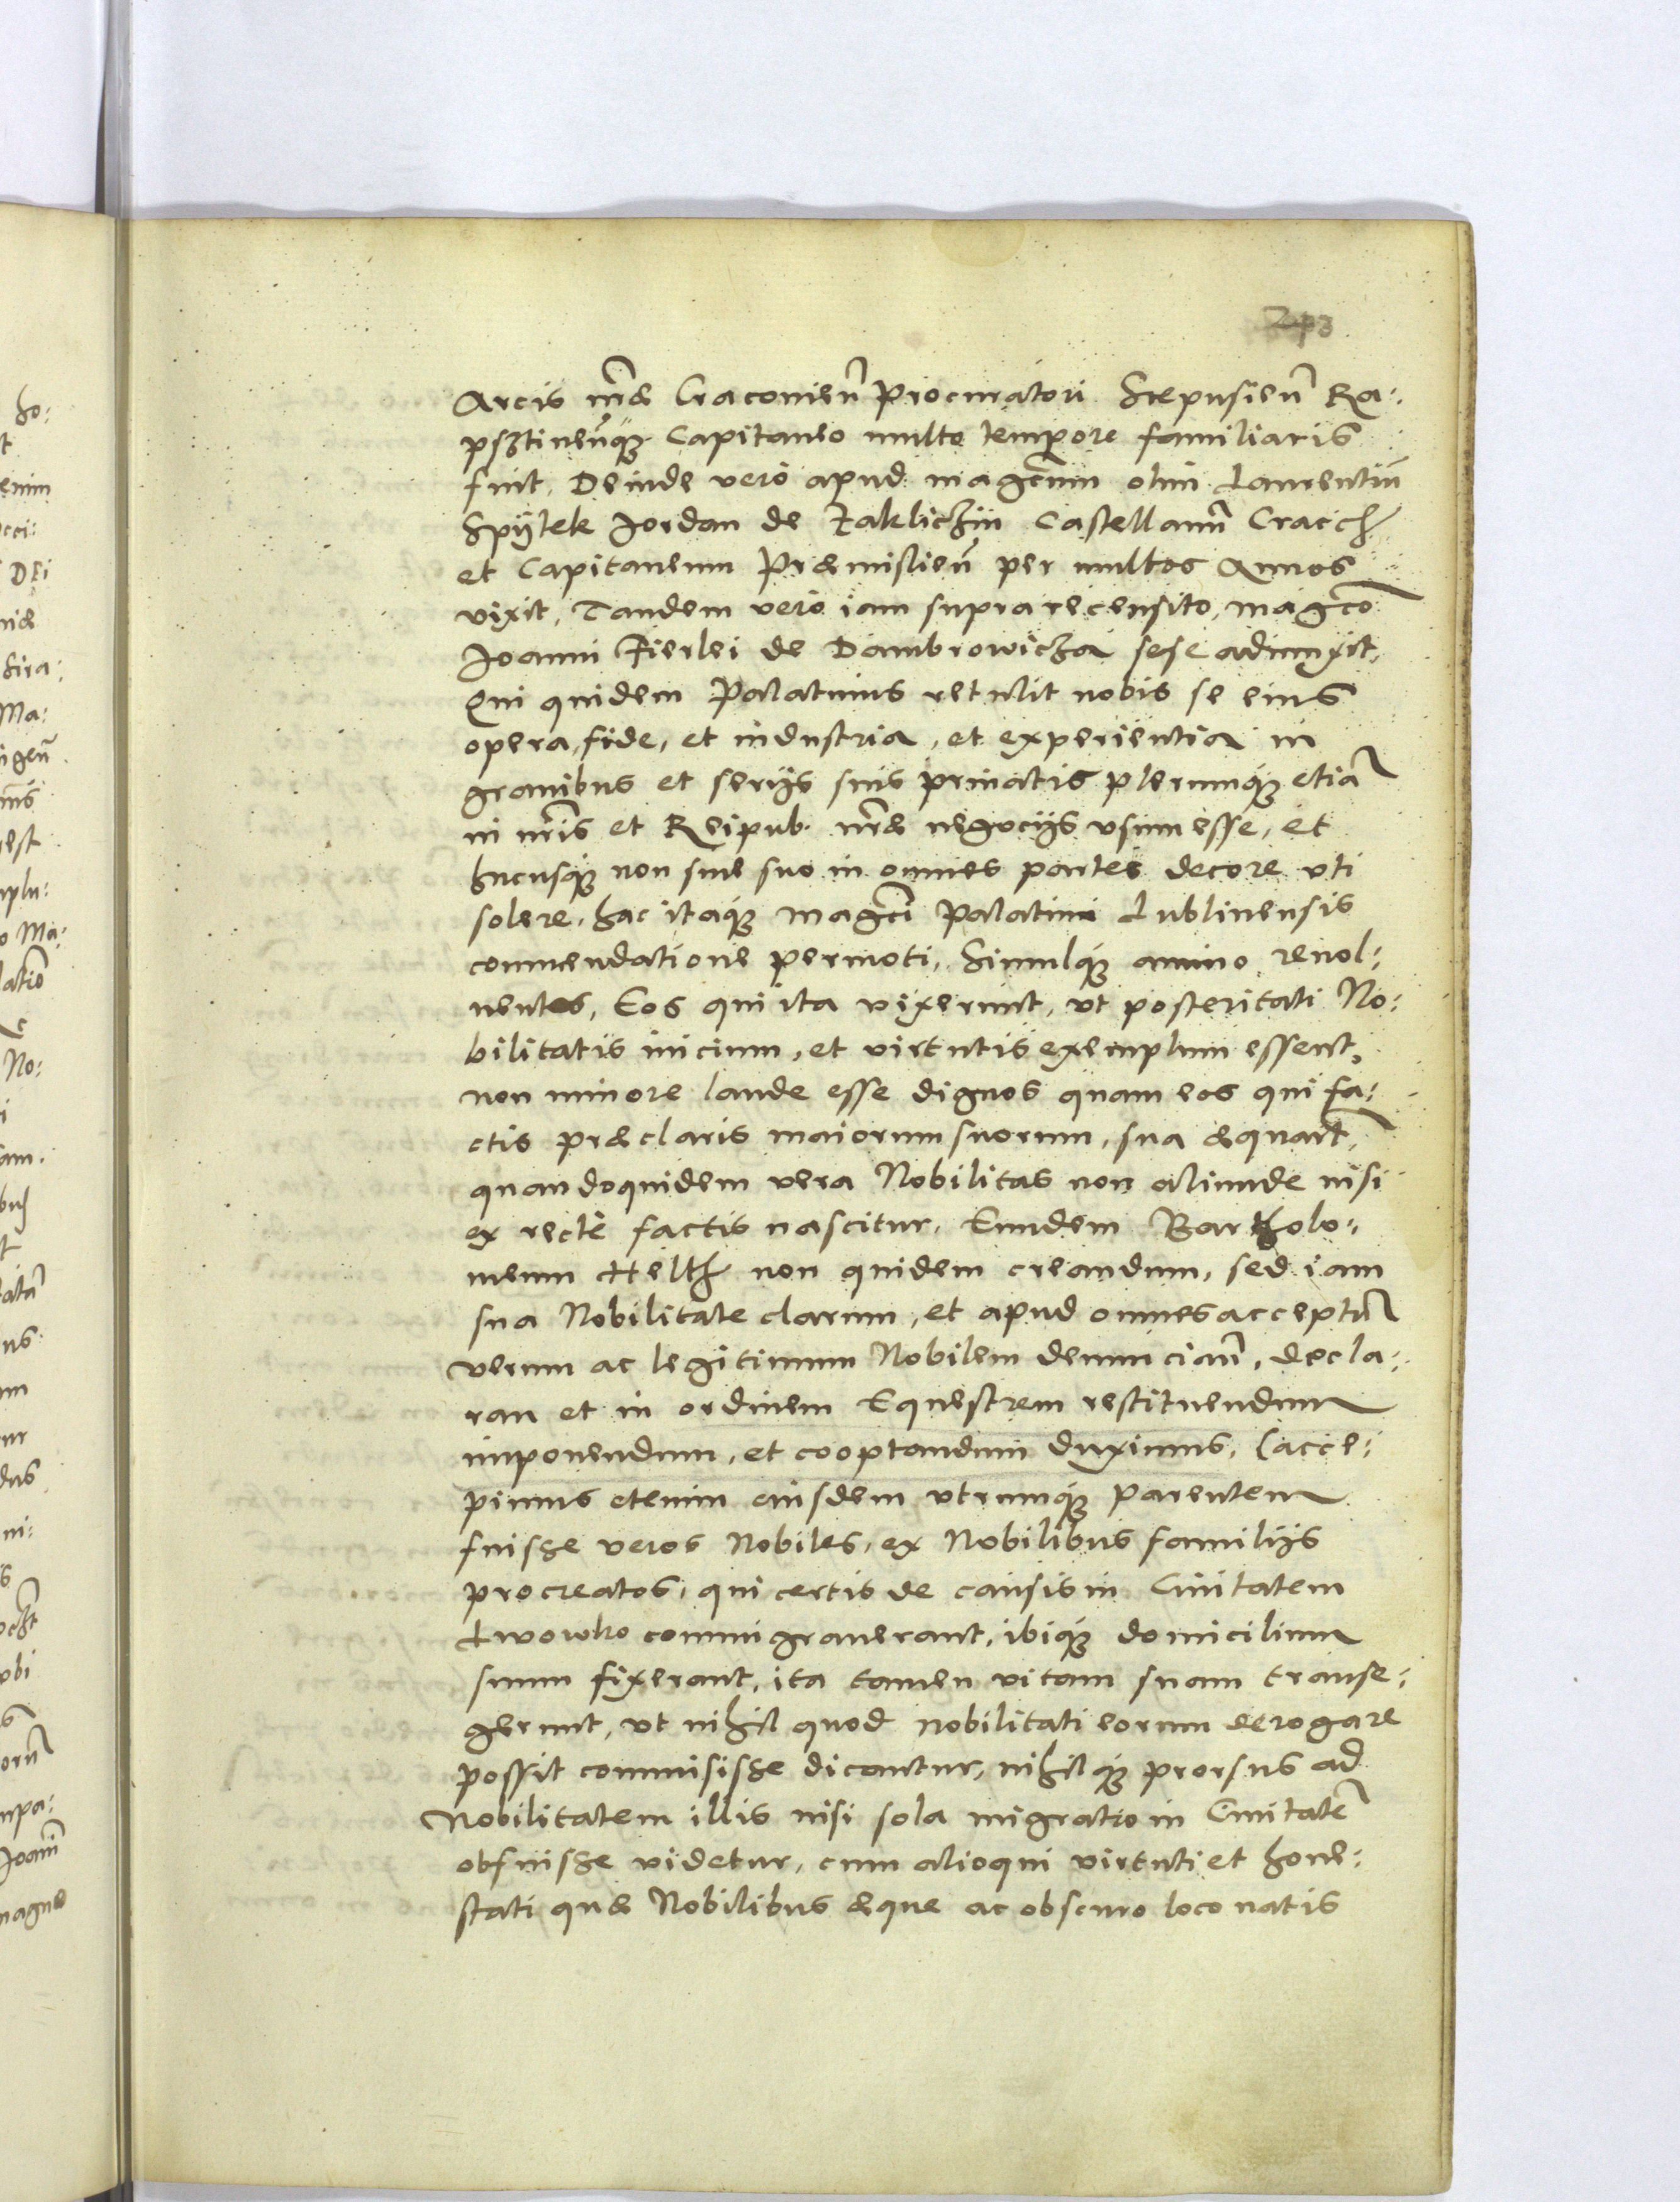 Arcis nr̃æ Cracouieñ Procuratori Scepusieñ Ra:
psztineñq̃ꝫ Capitaneo multo tempore familiaris
fuit, Deinde verò apud magcũm olim Laurentiũ
Spÿtek Jordan de Zaklichin Castellanũ Cracch
et Capitaneum Præmislieñ per multos Annos
vixit, Tandem verò iam supra recensito, magcõ
Joanni Fierlei de Dambrowicza sese adiunxit,
Qui quidem Palatinus retulit nobis se eius
opera, fide, et industria, et experientia in
grauibus et serijs suis priuatis plerumq́ꝫ etiã
in nr̃is et Reipub. nr̃æ negocijs vsum esse, et
hucusq́ꝫ non sine suo in omnes partes decore vti
solere, hac itaq́ꝫ magcĩ Palatini Lublinensis
commendatione permoti, Simulq́ꝫ animo reuol:
uentes, Eos qui ita vixerunt, vt posteritati No:
bilitatis inicium, et virtutis exemplum essent,
non minore laude esse dignos quam eos qui fa:
ctis præclaris maiorum suorum, sua æquar̃t,
quandoquidem vera Nobilitas non aliunde nisi
ex rectè factis nascitur, Eundem Bartholo:
meum Helth non quidem creandum, sed iam
sua Nobilitate clarum, et apud omnes acceptũ
verum ac legitimum Nobilem denunciañ, decla:
ran et in ordinem Equestrem restituendum
imponendum, et cooptandum duximus, (acce:
pimus etenim eiusdem vtrumq́ꝫ parentem
fuisse veros Nobiles, ex Nobilibus familijs
procreatos, qui certis de causis in Ciuitatem
Lwowko commigrauerant, ibiq́ꝫ domicilium
suum fixerant, ita tamen vitam suam transe:
gerunt, vt nihil quod nobilitati eorum derogare
possit commisisse dicantur, nihilq́ꝫ prorsus ad
Nobilitatem illis nisi sola migratio in Ciuitatẽ
obfuisse videtur, cum alioqui virtuti et hone:
stati quæ Nobilibus æque ac obscuro loco natis